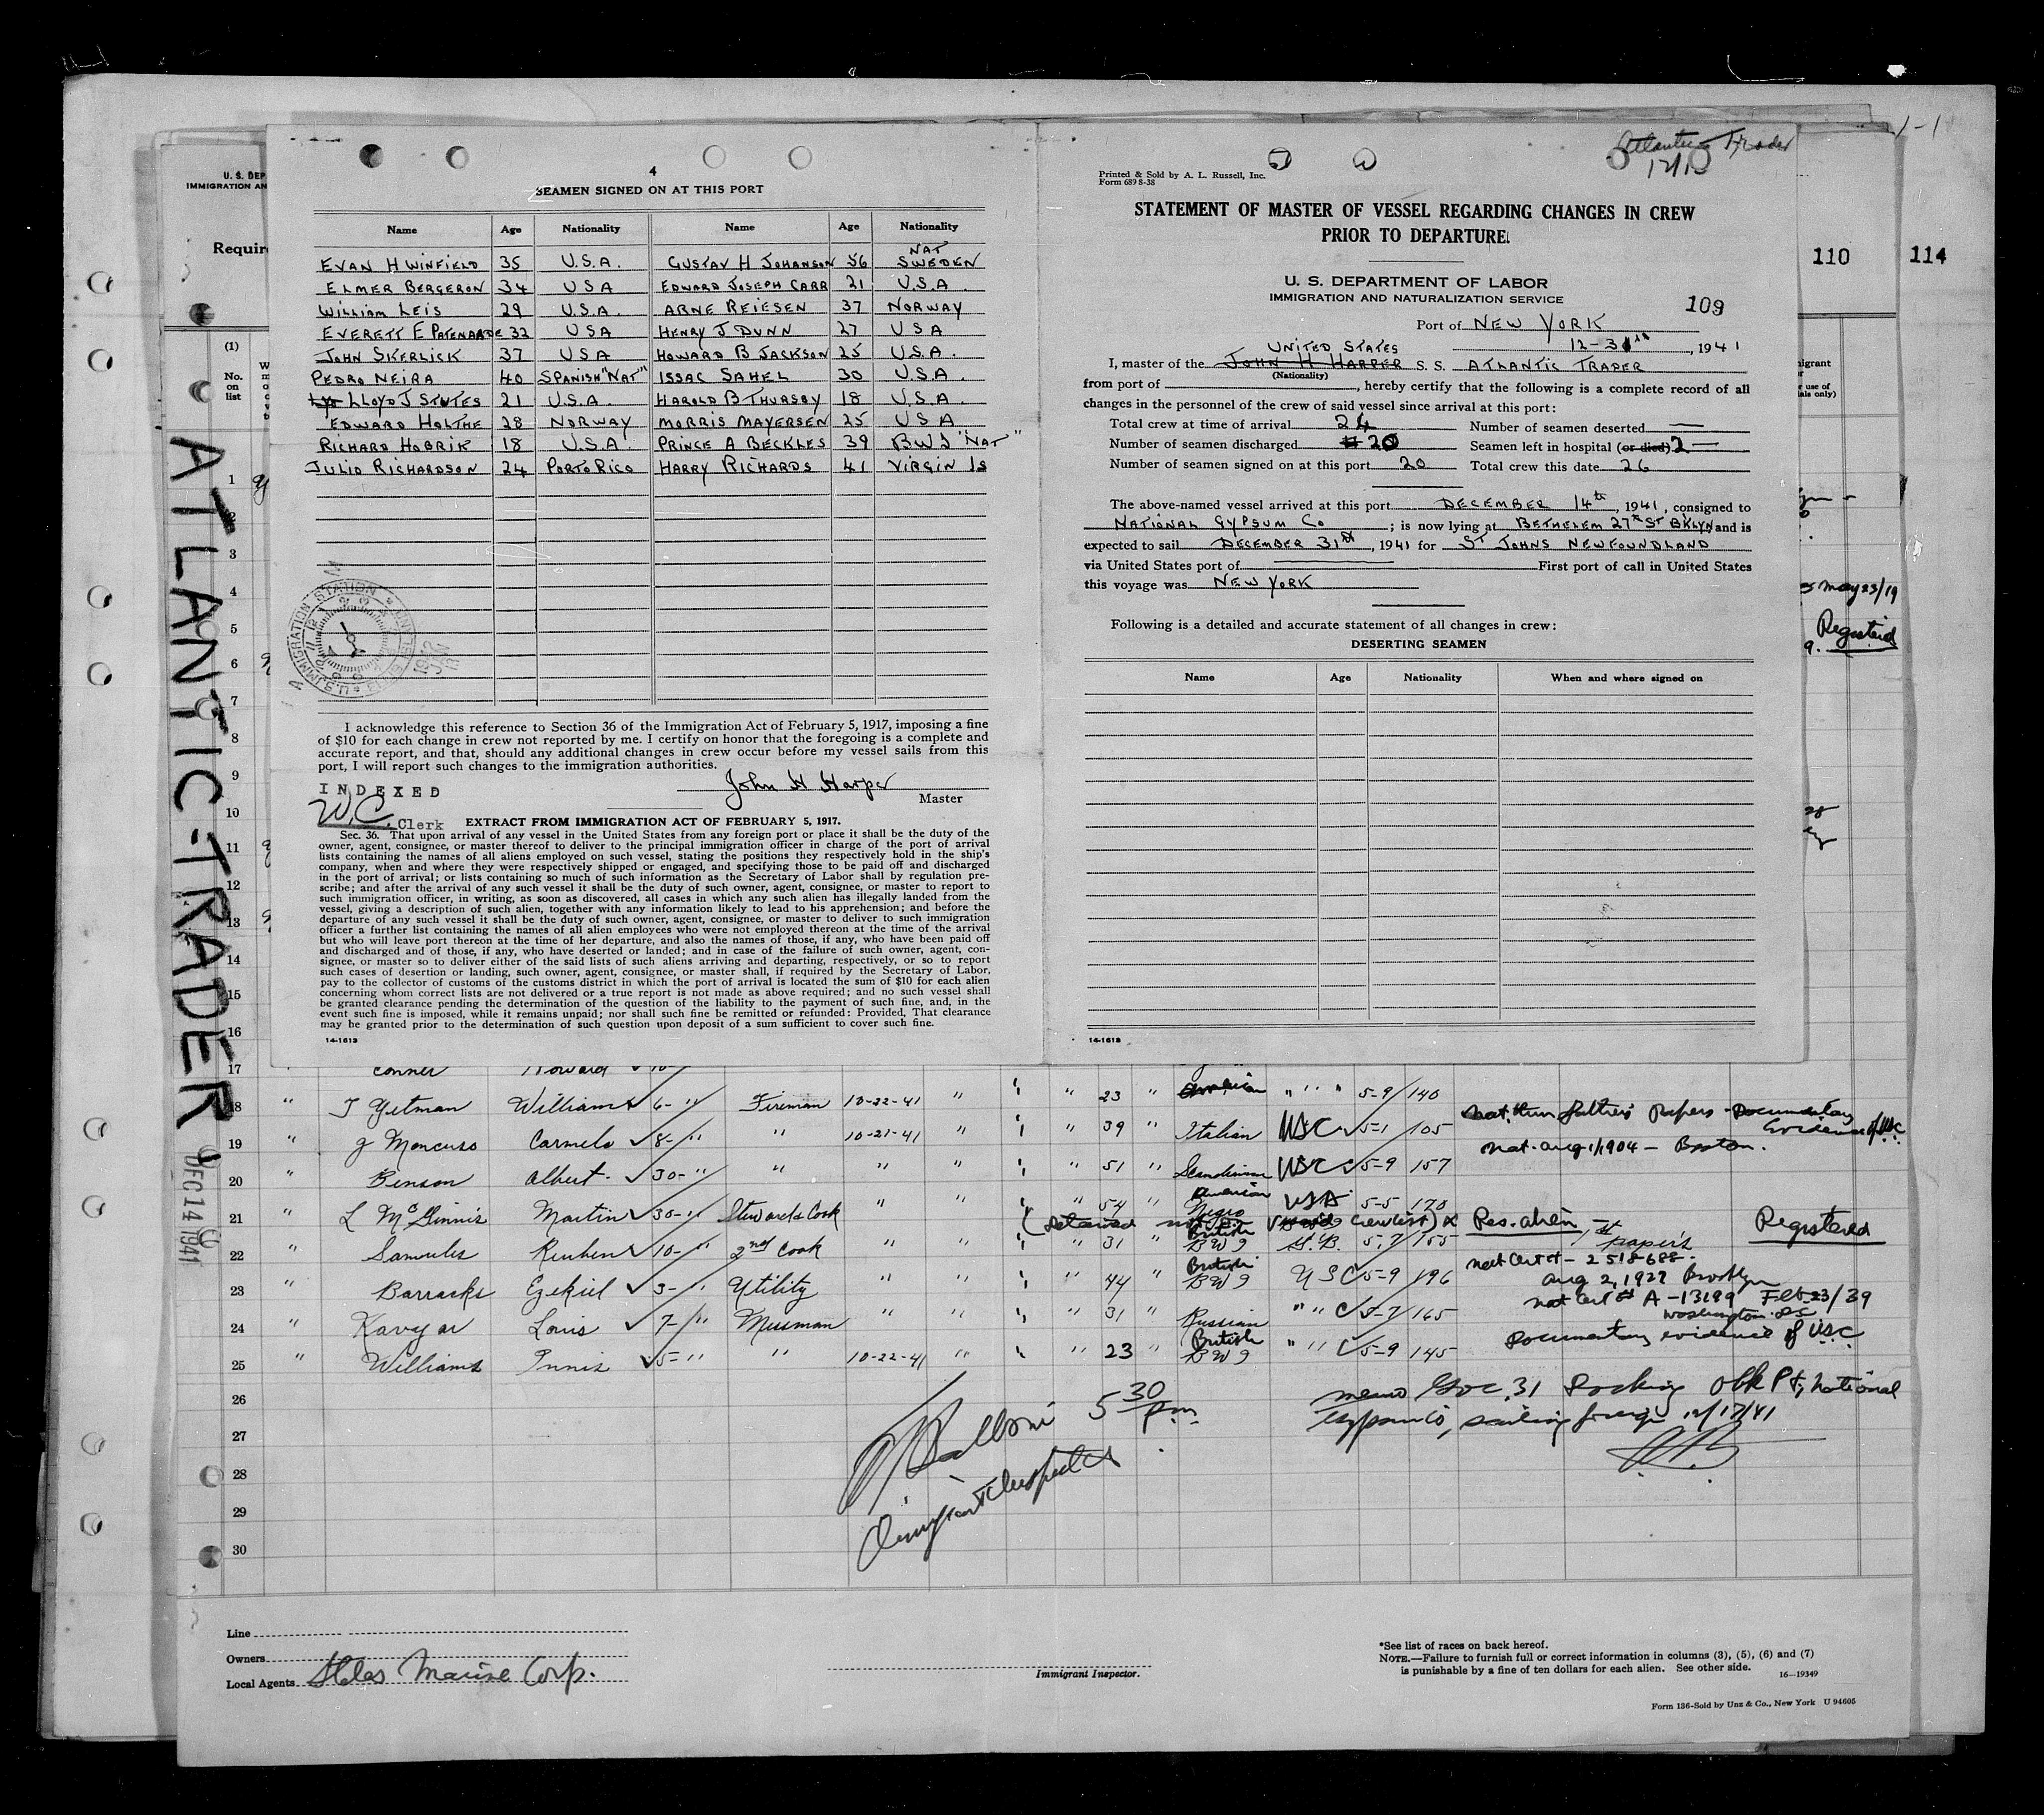 Atlantic Trader
12/13
1-1
U. S. DEP
IMMIGRATION AN
Requir
(1)
No. on list
110
114
ATLANTIC-TRADER
DEC 14 1941
4
SEAMEN SIGNED ON AT THIS PORT
Name Age Nationality Name Age Nationality
EVAN H WINFIELD 35 U.S.A. GUSTAV H JOHANSON 56 NAT SWEDEN
ELMER BERGERON 34 USA EDWARD JOSEPH CARR 21 U.S.A.
WILLIAM LEIS 29 U.S.A. ARNE REIESEN 37 NORWAY
EVERETT E PATENAADE 32 USA HENRY J DUNN 27 USA
JOHN SKERLICK 37 USA HOWARD B JACKSON 25 U.S.A.
PEDRO NEIRA 40 SPANISH "NAT" ISSAC SAHEL 30 U.S.A.
LLOYD J STUTES 21 U.S.A. HAROLD B THURSBY 18 U.S.A.
EDWARD HOLTHE 28 NORWAY MORRIS MAYERSEN 25 USA
RICHARD HOBRIK 18 U.S.A. PRINCE A BECKLES 39 BWI "NAT"
JULIO RICHARDSON 24 PORTO RICO HARRY RICHARDS 41 VIRGIN IS
I acknowledge this reference to Section 36 of the Immigration Act of February 5, 1917, imposing a fine
of $10 for each change in crew not reported by me. I certify on honor that the foregoing is a complete and
accurate report, and that, should any additional changes in crew occur before my vessel sails from this
port, I will report such changes to the immigration authorities.
John H Harper
Master
INDEXED
W.C. Clerk
EXTRACT FROM IMMIGRATION ACT OF FEBRUARY 5, 1917.
Sec. 36. That upon arrival of any vessel in the United States from any foreign port or place it shall be the duty of the
owner, agent, consignee, or master thereof to deliver to the principal immigration officer in charge of the port of arrival
lists containing the names of all aliens employed on such vessel, stating the positions they respectively hold in the ship's
company, when and where they were respectively shipped or engaged, and specifying those to be paid off and discharged
in the port of arrival; or lists containing so much of such information as the Secretary of Labor shall by regulation pre-
scribe; and after the arrival of any such vessel it shall be the duty of such owner, agent, consignee, or master to report to
such immigration officer, in writing, as soon as discovered, all cases in which any such alien has illegally landed from the
vessel, giving a description of such alien, together with any information likely to lead to his apprehension; and before the
departure of any such vessel it shall be the duty of such owner, agent, consignee, or master to deliver to such immigration
officer a further list containing the names of all alien employees who were not employed thereon at the time of the arrival
but who will leave port thereon at the time of her departure, and also the names of those, if any, who have been paid off
and discharged and of those, if any, who have deserted or landed; and in case of the failure of such owner, agent, con-
signee, or master so to deliver either of the said lists of such aliens arriving and departing, respectively, or so to report
such cases of desertion or landing, such owner, agent, consignee, or master shall, if required by the Secretary of Labor,
pay to the collector of customs of the customs district in which the port of arrival is located the sum of $10 for each alien
concerning whom correct lists are not delivered or a true report is not made as above required; and no such vessel shall
be granted clearance pending the determination of the question of the liability to the payment of such fine, and, in the
event such fine is imposed, while it remains unpaid; nor shall such fine be remitted or refunded: Provided, That clearance
may be granted prior to the determination of such question upon deposit of a sum sufficient to cover such fine.
14-1613
Printed & Sold by A. L. Russell, Inc.
Form 689 8-38
STATEMENT OF MASTER OF VESSEL REGARDING CHANGES IN CREW
PRIOR TO DEPARTURE.
U. S. DEPARTMENT OF LABOR
IMMIGRATION AND NATURALIZATION SERVICE
109
Port of NEW YORK
12-31st, 1941
UNITED STATES
I, master of the JOHN H HARPER S. S. ATLANTIC TRADER
(Nationality)
from port of , hereby certify that the following is a complete record of all
changes in the personnel of the crew of said vessel since arrival at this port:
Total crew at time of arrival 24 Number of seamen deserted —
Number of seamen discharged 20 Seamen left in hospital (or died) 2 —
Number of seamen signed on at this port 20 Total crew this date 26
The above-named vessel arrived at this port DECEMBER 14th, 1941, consigned to
NATIONAL GYPSUM Co ; is now lying at BETHELEM 27th ST BKLYN and is
expected to sail DECEMBER 31st, 1941 for ST JOHNS NEWFOUNDLAND
via United States port of First port of call in United States
this voyage was NEW YORK
Following is a detailed and accurate statement of all changes in crew:
DESERTING SEAMEN
Name Age Nationality When and where signed on
14-1613
May 23/19
Registered
1
2
3
4
5
6
7
8
9
10
11
12
13
14
15
16
17 Conner Howard
18 " J Yetman William 6- " Fireman 10-22-41 " " " 23 " American " " " 5-9 140
19 " J Moncuso Carmelo 8- " " 10-21-41 " " " 39 " Italian USC 5-1 105 Nat. thru father's papers - Documentary Evidence of USC
Nat. Aug 1/1904 - Boston.
20 " Benson Albert 30- " " " " " " 51 " Scandinavian USC 5-9 157
21 " L McGinnis Martin 30- " Stewards Cook " " " 54 " American Negro USA 5-5 170
22 " Samules Reuben 10- " 2nd Cook " " " 31 " British BWI G.B. 5-7 155 Res. alien, 1st papers Registered
23 " Barracks Ezekiel 3- " Utility " " " 44 " British BWI USC 5-9 196 Nat Cert # - 2518688 -
Aug 2, 1927 Brooklyn
24 " Kavyar Louis 7- " Messman " " " 31 " Russian " " C 5-7 165 Nat Cert # A-13199 Feb 23/39
Washington DC
25 " Williams Innis 5- " " 10-22-41 " " " 23 " British BWI " " C 5-9 145 Documentary evidence of USC
26
27
28
29
30
5 30 pm
Immigrant Inspector
National
sailing foreign 12/17/41
Line
Owners
Local Agents Steles Marine Corp.
Immigrant Inspector.
*See list of races on back hereof.
NOTE.—Failure to furnish full or correct information in columns (3), (5), (6) and (7)
is punishable by a fine of ten dollars for each alien. See other side.
16—19349
Form 136-Sold by Unz & Co., New York U 94605